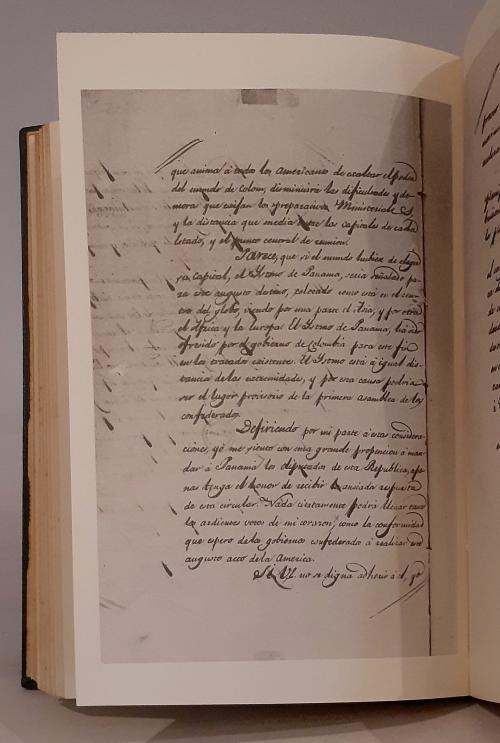 que anima á todos los Americanos de exaltar el poder
del mundo de Colon, disminuirá las dificultades y de-
mora que exijan los preparativos Ministeriales, &
y la distancia que media entre las capitales de cada
Estado, y el punto central de reunion.
Parece, que si el mundo hubiese de elegir
su Capital, el Istmo de Panama, seria señalado pa-
ra este augusto destino, colocado como está en el cen-
tro del globo, viendo por una parte el Asia, y por otra
el Africa y la Europa. El Istmo de Panama, ha sido
ofrecido por el gobierno de Colombia para este fin
en los tratados existentes. El Istmo está á igual dis-
tancia de las extremidades, y por esta causa podria
ser el lugar provisorio de la primera asamblea de los
confederados.
Defiriendo por mi parte á estas considera-
ciones, yo me siento con una grande propencion á man-
dar á Panamá los diputados de esta Republica, ape-
nas tenga el honor de recibir la ansiada respuesta
de esta circular. Nada ciertamente podrá llenar tanto
los ardientes votos de mi corazon, como la conformidad
que espero de los gobiernos confederados á realizar este
augusto acto de la America.
Si V. E. no se digna adherir á él, yo